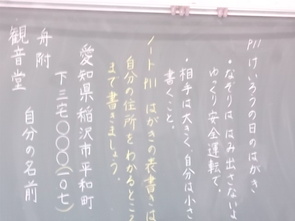 P11 けいろうの日のはがき
・なぞりは はみ出さない。
ゆっくり安全運転で。
・相手は大きく、自分は小さく
書くこと。
ノートP11 はがきの表書きは
自分の住所をわかるところ
まで書きましょう。
愛知県稲沢市平和町
下三宅〇〇〇(一〇七)
舟附
観音堂
自分の名前